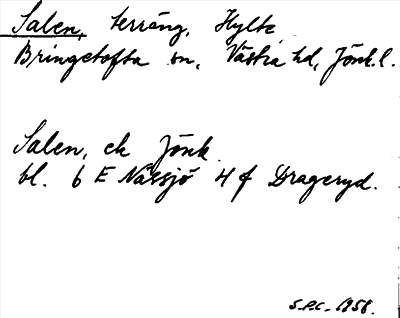 Salen, terräng, Hylte
Bringetofta sn, Västra hd, Jönk. l.
Salen, ek Jönk
bl. 6 E Nässjö 4 f Drageryd.
S.P.C. 1958.